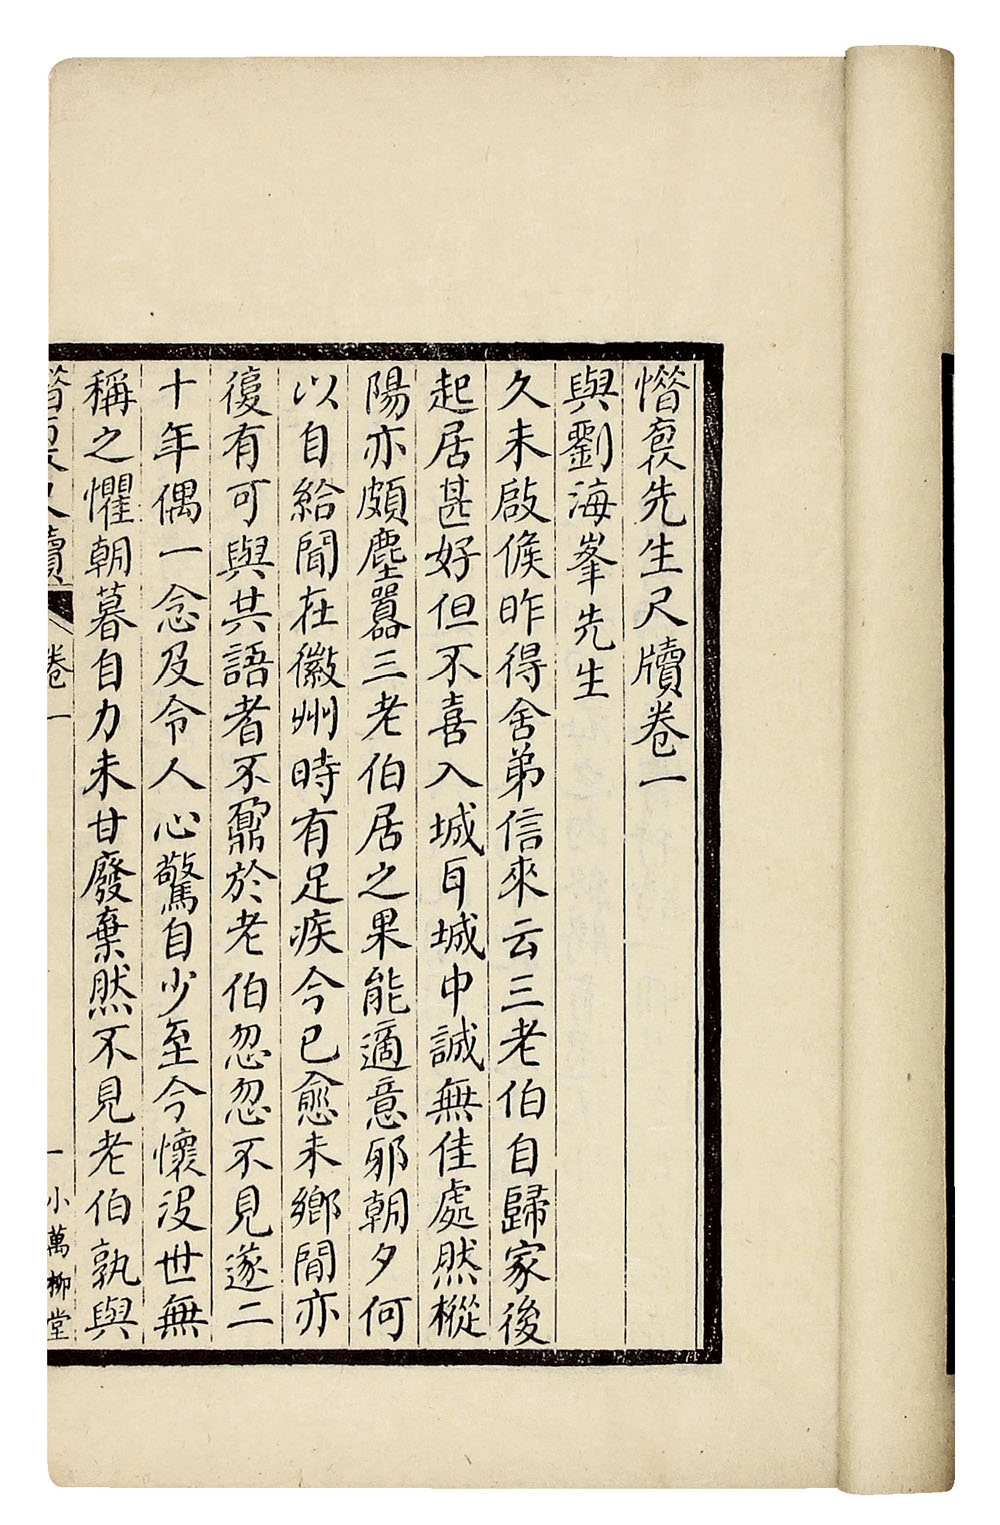 惜裒先生尺牘卷一
與劉海峯先生
久未啟候昨得舍弟信來云三老伯自歸家後
起居甚好但不喜入城耳城中誠無佳處然樅
陽亦頗塵囂三老伯居之果能適意邪朝夕何
以自給聞在徽州時有足疾今已愈未鄉間亦
復有可與共語者不鼐於老伯忽忽不見遂二
十年偶一念及令人心驚自少至今懷沒世無
稱之懼朝暮自力未甘廢棄然不見老伯孰與
惜裒尺牘 卷一 一 小萬柳堂